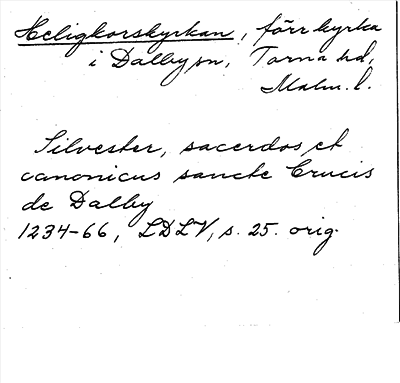 Heligkorskyrkan, förr kyrka
i Dalby sn, Torna hd,
Malm. l.
Silvester, sacerdos et
canonicus sancte Crucis
de Dalby
1234-66, LDLV, s. 25. orig.